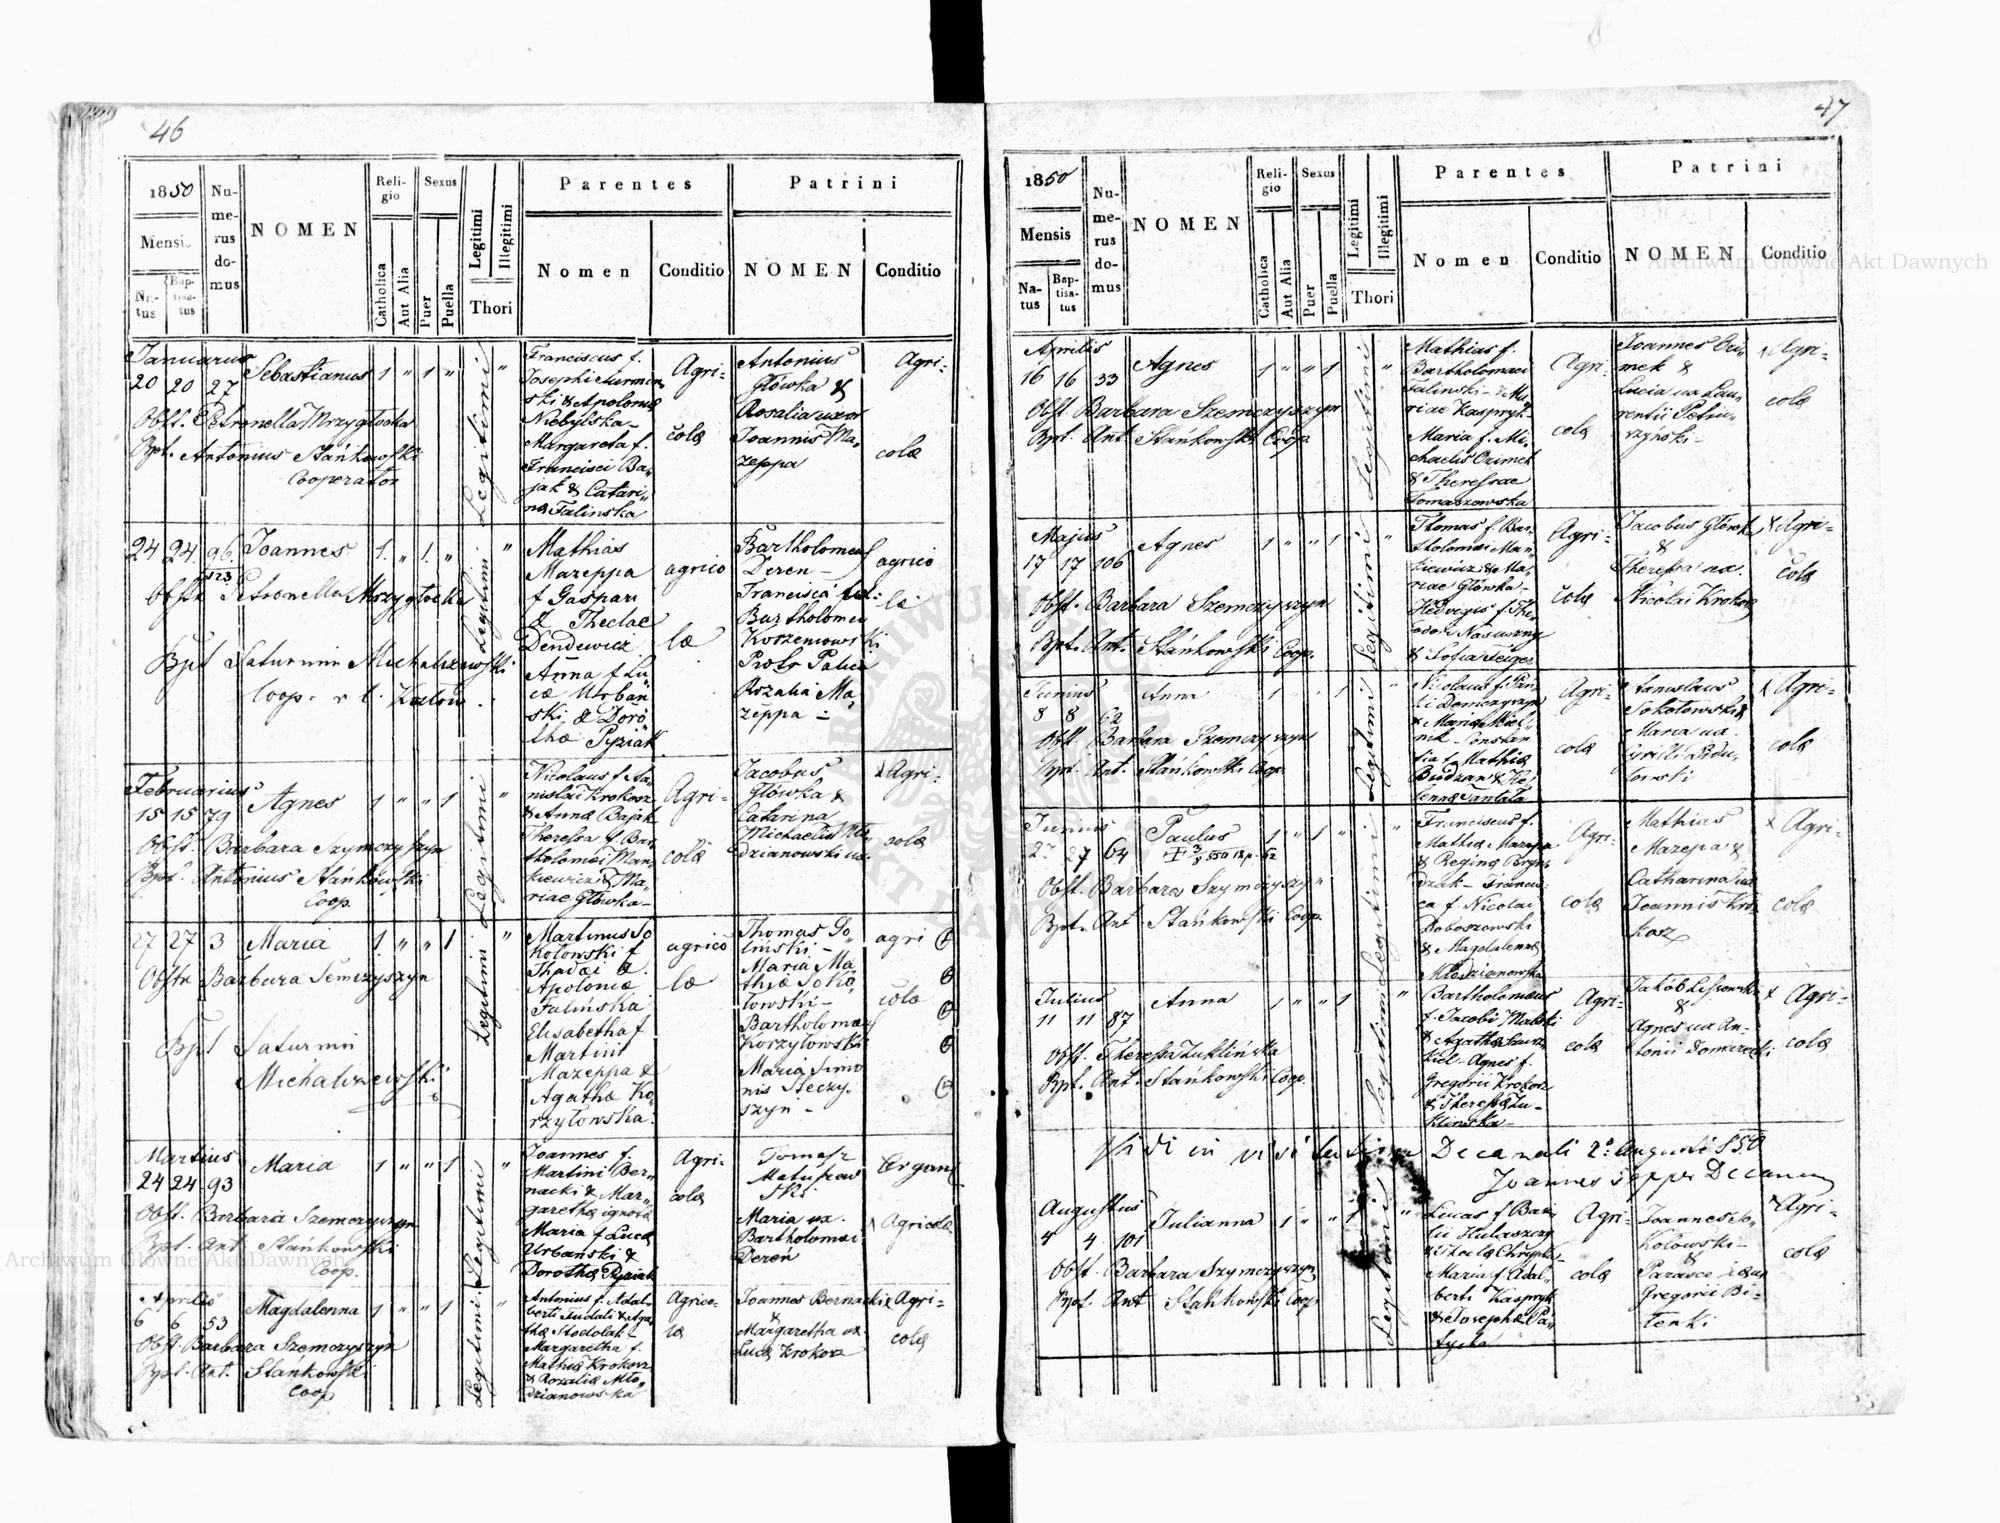 46
1850
Nu-
me-
rus
do-
mus
NOMEN
Reli-
gio
Sexus
Legitimi
Illegitimi
Thori
Parentes
Patrini
Mensis
Na-
tus
Bap-
tisa-
tus
Catholica
Aut Alia
Puer
Puella
Nomen
Conditio
NOMEN
Conditio
Januarius
20 20 27 Sebastianus 1 " 1 "
Obst. Petronella Mrzygłocka
Bpt. Antonius Stańkowski
Cooperator
Legitimi
"
Franciscus f.
Josephi
ski & Apolonia
Niebylska -
Margareta f.
Francisci Ba-
jak & Catari-
na Falinska
Agri-
colæ
Antonius
Główka &
Rosalia uxor
Joannis Ma-
zeppa
Agri-
colæ
24 24 96 Joannes 1 " 1 "
123
Obstr Petronella Mrzygłocka
Bpt Saturnin Michalczewski
Coop. r. l. Kozłow
Legitimi
"
Mathias
Mazeppa
f Gaspari
& Theclae
Dendewicz
Anna f Lu-
cæ Urbań
ski & Doro
thæ Pyziak
agrico
læ
Bartholomeus
Deren -
Francisca
Bartholomeu
Korzeniowski
Rozalia Ma
zeppa -
agrico
læ
Februarius
15 15 79 Agnes 1 " " 1
Obst. Barbara Szymczyszyn
Bpt. Antonius Stańkowski
Coop.
Legitimi
"
Nicolaus f. Sta-
nislai Krokosz
& Annæ Bajak
Theressa f. Bar-
tholomæi Man-
kiewicz & Ma-
riae Główka -
Agri-
colæ
Jacobus
Główka &
Catarina
Michaelis Mło
dzianowski ux.
x Agri-
colæ
27 27 3 Maria 1 " " 1
Obstr Barbara Semczyszyn
Bpt Saturnin
Michalczewski
Legitimi
"
Martinus So
kołowski f
Thadæi &
Apoloniæ
Falińska
Elisabetha f
Martini
Mazeppa &
Agathæ Ko
rzyłowska.
agrico
læ
Thomas So
liński -
Maria Ma
thiæ Soko
łowski -
Bartholomæy
Korzyłowski
Maria Simo
nis Steczy-
szyn -
agri
colæ
Martius
24 24 93 Maria 1 " " 1
Obst. Barbara Szemczyszyn
Bpt. Ant Stańkowski
Coop.
Legitimi
"
Joannes f.
Martini Ber-
nacki & Mar-
garethæ ignota
Maria f Lucæ
Urbański &
Dorothæ Pyziak
Agri-
colæ
Tomasz
Matuszew
ski
Maria ux.
Bartholomæi
Dereń
Organi
x Agricolæ
Aprilis
6 6 53 Magdalenna 1 " " 1
Obst. Barbara Szemczyszyn
Bpt. Ant. Stańkowski
Coop
Legitimi
"
Antonius f. Adal-
berti Fudali & Aga-
thæ Stodolak -
Margaretha f.
Mathiæ Krokosz
& Rozaliæ Mło-
dzianowska
Agrico-
læ
Joannes Bernacki
&
Margaretha ux.
Lucæ Krokosz
x Agri-
colæ
47
1850
Nu-
me-
rus
do-
mus
NOMEN
Reli-
gio
Sexus
Legitimi
Illegitimi
Thori
Parentes
Patrini
Mensis
Na-
tus
Bap-
tisa-
tus
Catholica
Aut Alia
Puer
Puella
Nomen
Conditio
NOMEN
Conditio
Aprilis
16 16 33 Agnes 1 " " 1
Obst Barbara Szemczyszyn
Bpt. Ant Stańkowski Coop.
Legitimi
"
Mathias f.
Bartholomæi
Falinski - & Ma-
riae Kaspryk -
Maria f. Mi-
chaelis Ozimek
& Theressae
Tomaszowska
Agri-
colæ
Joannes Ozi-
mek &
Lucia ux Lau-
rentii Petru-
szyński -
x Agri-
colæ
Majus
17 17 106 Agnes 1 " " 1
Obst. Barbara Szemczyszyn
Bpt. Ant. Stańkowski Coop.
Legitimi
"
Thomas f. Bar-
tholomæi Man-
kiewicz & Ma-
riae Główka -
Hedvigis f. The-
odori
& Sofia Feiger
Agri-
colæ
Jacobus Główka
&
Theressa ux.
Nicolai Krokosz
x Agri-
colæ
Junius
8 8 62 Anna 1 " " 1
Obst Barbara Szemczyszyn
Bpt. Ant. Stańkowski Coop.
Legitimi
Nicolaus f. Pau-
li Demczyszyn
& Maria
Constan
tia f. Mathiæ
Budzan & He
lennæ Tantala
Agri-
colæ
Stanislaus
Sokołowski &
Maria ux.
Cyrilli
x Agri-
colæ
Junius
27 27 64 Paulus 1 " 1 "
Obst Barbara Szymczyszyn
Bpt. Ant Stańkowski Coop.
Legitimi
"
Franciscus f.
Mathiæ Mazepa
& Reginæ
Francis-
ca f. Nicolai
Doboszowski
& Magdalennæ
Młodzianowska
Agri-
colæ
Mathias
Mazepa &
Catharina ux
Joannis Kro-
kosz
x Agri-
colæ
Julius
11 11 87 Anna 1 " " 1
Obst. Theressa Zuklińska
Bpt. Ant. Stańkowski Coop.
Legitimi
"
Bartholomæus
f. Jacobi
& Agathæ
Agnes f.
Gregorii Krokosz
& Theressæ Zu-
klinska -
Agri-
colæ
Jakób
&
Agnes ux An-
tonii Domarecki
x Agri-
colæ
Vidi in visitatione Decanali 2a Augusti 850
Joannes Decanus
Augustus
4 4 101 Julianna 1 " " 1
Obst. Barbara Szymczyszyn
Bpt. Ant Stańkowski Coop
Legitimi
"
Lucas f Basi
lii
& Theclæ
Maria f. Adal-
berti Kaspryk
& Josephæ Pa-
tyska
Agri-
colæ
Joannes So-
kołowski -
&
Gregorii Bi-
lenki
x Agri-
colæ
Archiwum Główne Akt Dawnych
Archiwum Główne Akt Dawnych